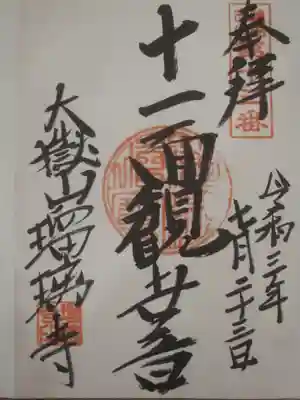 奉拝
十一面観世音
令和三年
七月二十三日
大嶽山瑠璃寺